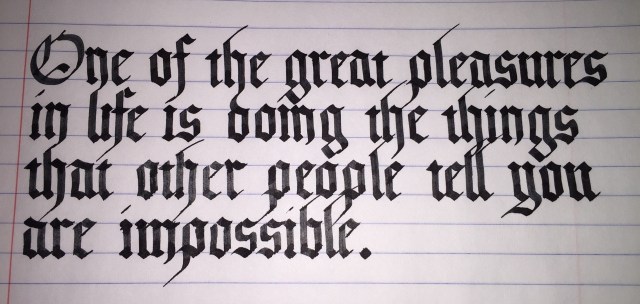 One of the great pleasures
in life is doing the things
that other people tell you
are impossible.